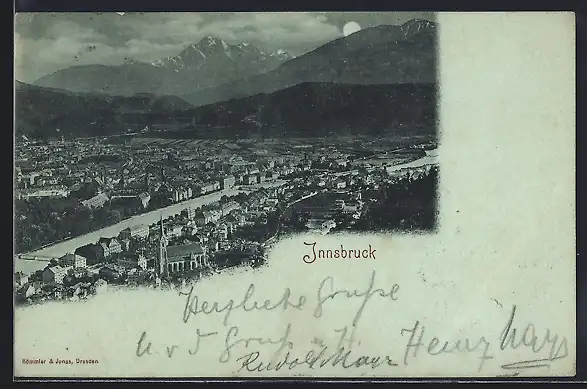 Innsbruck
Herzliche Grüße
u v d Gruß Heinz Mayr
Rudolf Mayr
Römmler & Jonas, Dresden